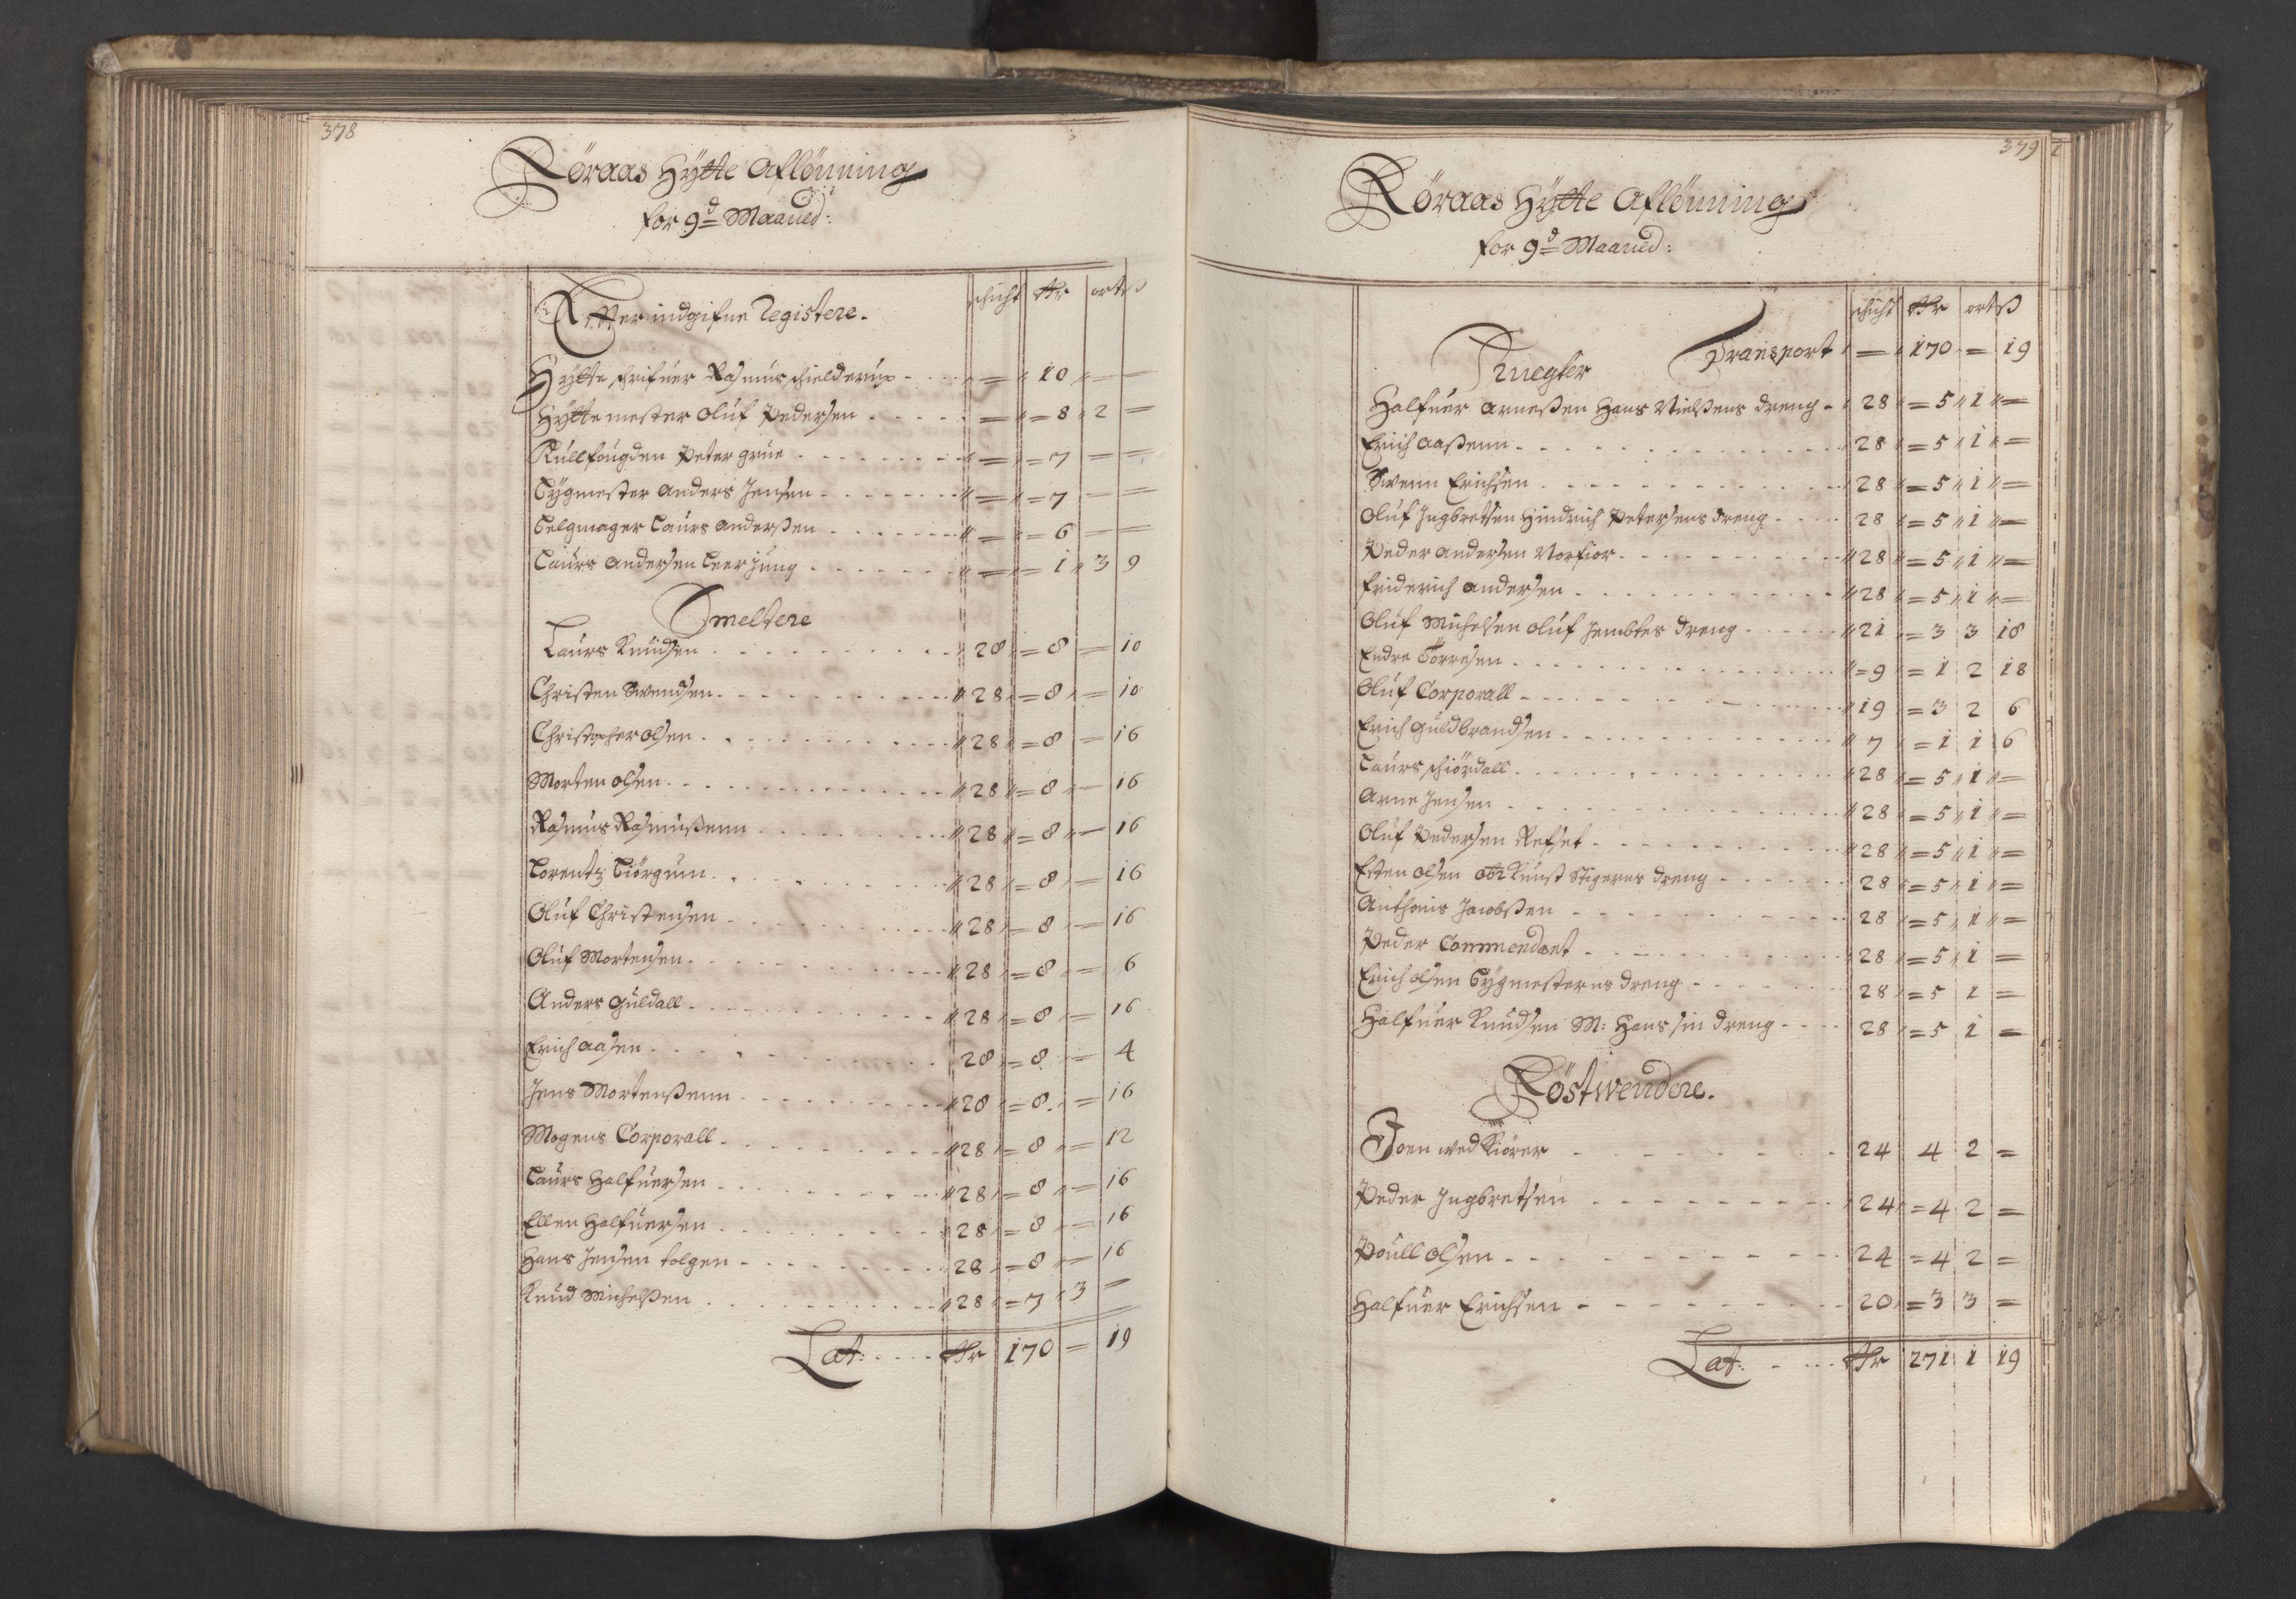 378
Röraas Hÿtte Aflönning
for 9d Maaned:
Efter indgifne Registere.
schicht Rdr ort ß
Hÿtte schrifuer Rasmus schielderup - = 10 = =
Hÿttemester Oluf Pedersen = = 8 2 =
Kullfougden Peter grüe = = 7 = =
Tÿgmester Anders Jensen = = 7 = =
Belgmager Laurs Anderßen = = 6 = =
Laurs Andersen Leerjung = = 1 3 9
Smeltere
Laurs Knudsen 28 = 8 = 10
Christen Swendsen 28 = 8 = 10
Christopher olsen 28 = 8 = 16
Morten olsen 28 = 8 = 16
Rasmus Rasmußenn 28 = 8 = 16
Lorentz Tiörgum 28 = 8 = 16
Oluf Christensen 28 = 8 = 16
Oluf Mortensen 28 = 8 = 6
Anders guldall 28 = 8 = 16
Erich aasen 28 = 8 = 4
Jens Mortenßenn 28 = 8 = 16
Mogens Corporall 28 = 8 = 12
Laurs Halfuersen 28 = 8 = 16
Ellen Halfuersen 28 = 8 = 16
Hans Jensen tolgen 28 = 8 = 16
Knud Michelßen 28 = 7 3 =
Lat: Rdr 170 = 19
379
Röraas Hÿtte Aflönning
for 9d Maaned:
schicht Rdr ort ß
Transport = 170 = 19
Knegter
Halfuer Arneßen Hans Nielßens dreng 28 = 5 1 =
Erich Aaßenn 28 = 5 1 =
Swenn Erichsen 28 = 5 1 =
Oluf Ingbretsen Hindrich Petersens dreng 28 = 5 1 =
Peder Andersen Norfior 28 = 5 1 =
Friderich Andersen 28 = 5 1 =
Oluf Michelsen oluf Jembtes dreng 21 = 3 3 18
Endre Torresen = 9 = 1 2 18
Oluf Corporall 19 = 3 2 6
Erich Guldbrandsen 7 = 1 1 6
Laurs schiördall 28 = 5 1 =
Arne Jensen 28 = 5 1 =
Oluf Pedersen Refset 28 = 5 1 =
Esten olsen Kunst Stigerns dreng 28 = 5 1 =
Anthonis Jacobßen 28 = 5 1 =
Peder Commendant 28 = 5 1 =
Erich olsen Tÿgmesterns dreng 28 = 5 1 =
Halfuer Knudsen M: Hans sin dreng 28 = 5 1 =
Röstwendere.
Joen wed Kiörer 24 4 2 =
Peder Ingbretsen 24 = 4 2 =
Poull olsen 24 = 4 2 =
Halfuer Erichsen 20 = 3 3 =
Lat: Rdr 271 1 19